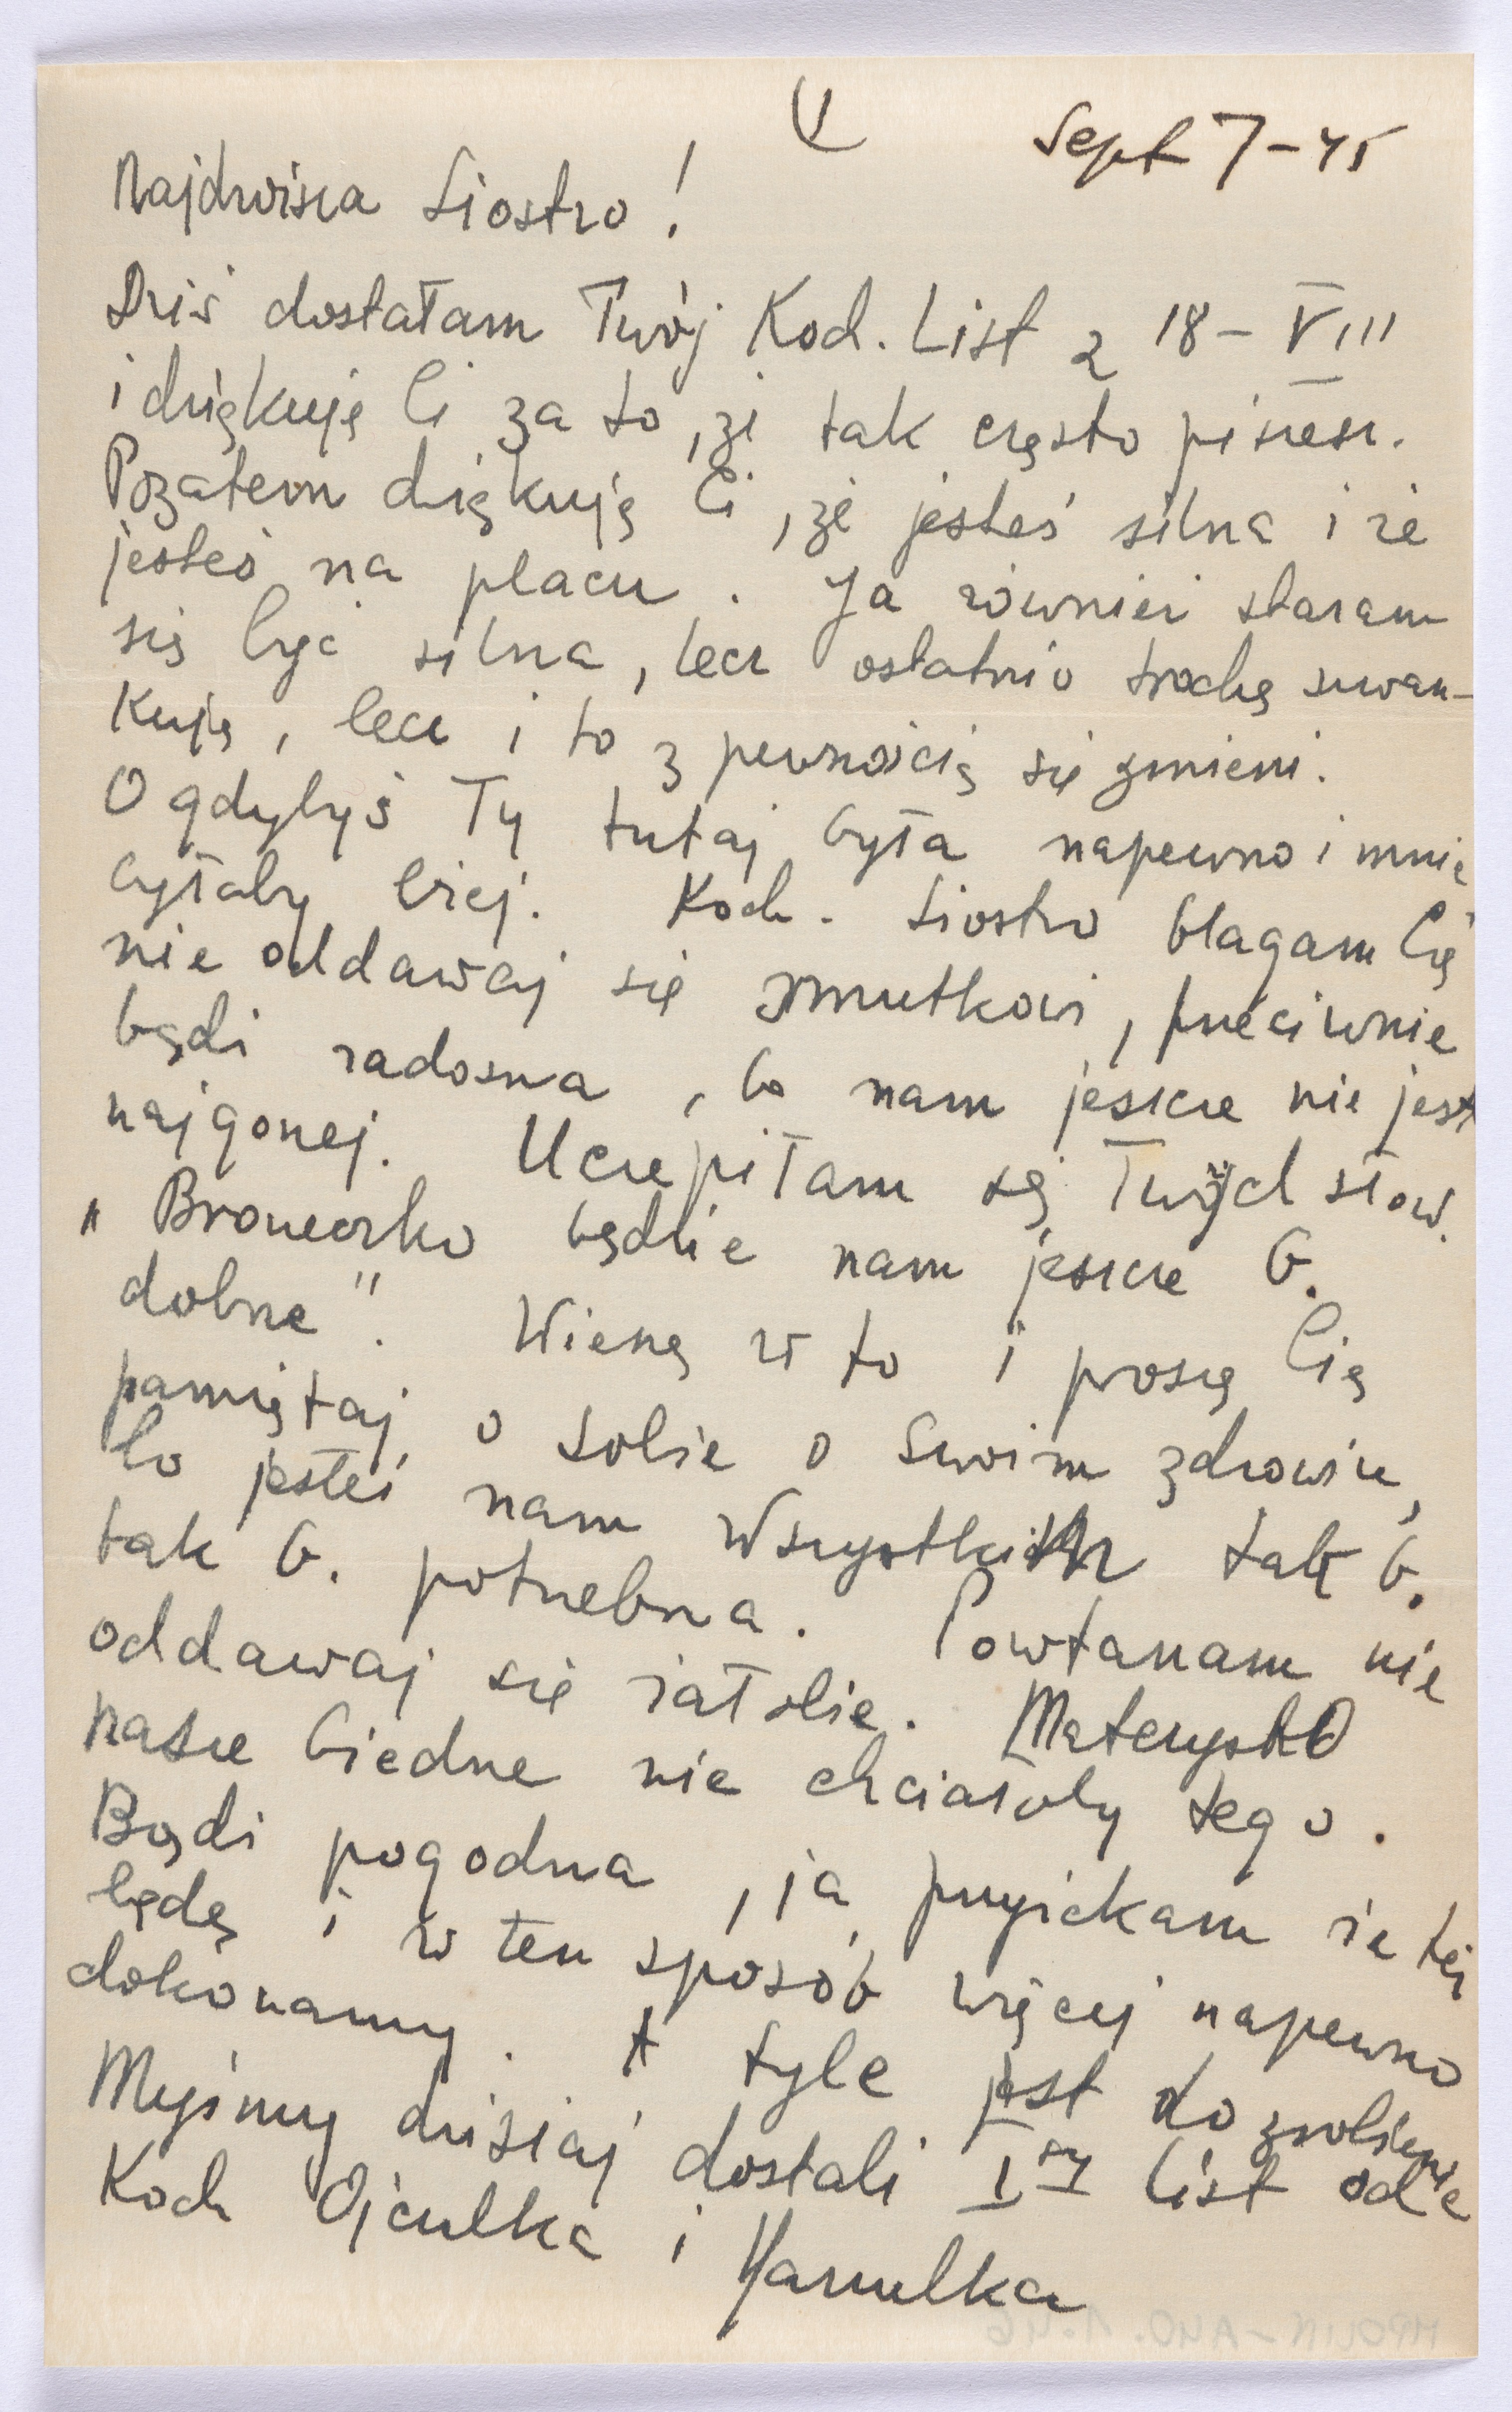 Sept 7-45
Najdroższa Siostro!
Dziś dostałam Twój Koch. List z 18-VIII
i dziękuję Ci za to, że tak często piszesz.
Pozatem dziękuję Ci, że jesteś silna i że
jesteś na placu. Ja również staram
się być silna, lecz ostatnio trochę szwan-
kuję, lecz i to z pewnością się zmieni.
O gdybyś Ty tutaj była napewno i mnie
byłaby lżej. Koch. Siostro błagam Cię
nie oddawaj się smutkowi, przeciwnie
bądź radosna, bo nam jeszcze nie jest
najgorzej. Uczepiłam się Twych słów.
"Broneczko będzie nam jeszcze b.
dobrze". Wierzę w to i proszę Cię
pamiętaj o sobie o swoim zdrowiu,
bo jesteś nam wszystkim tak b.
tak b. potrzebna. Powtarzam nie
oddawaj się żałobie. Mateczysko
nasze biedne nie chciałoby tego.
Bądź pogodna, ja przyrzekam że też
będę i w ten sposób więcej napewno
dokonamy. A tyle jest do zrobienia
Myśmy dzisiaj dostali I-szy list od
Koch Ojculka i Harmulka
MPOLIN-A40.1.46